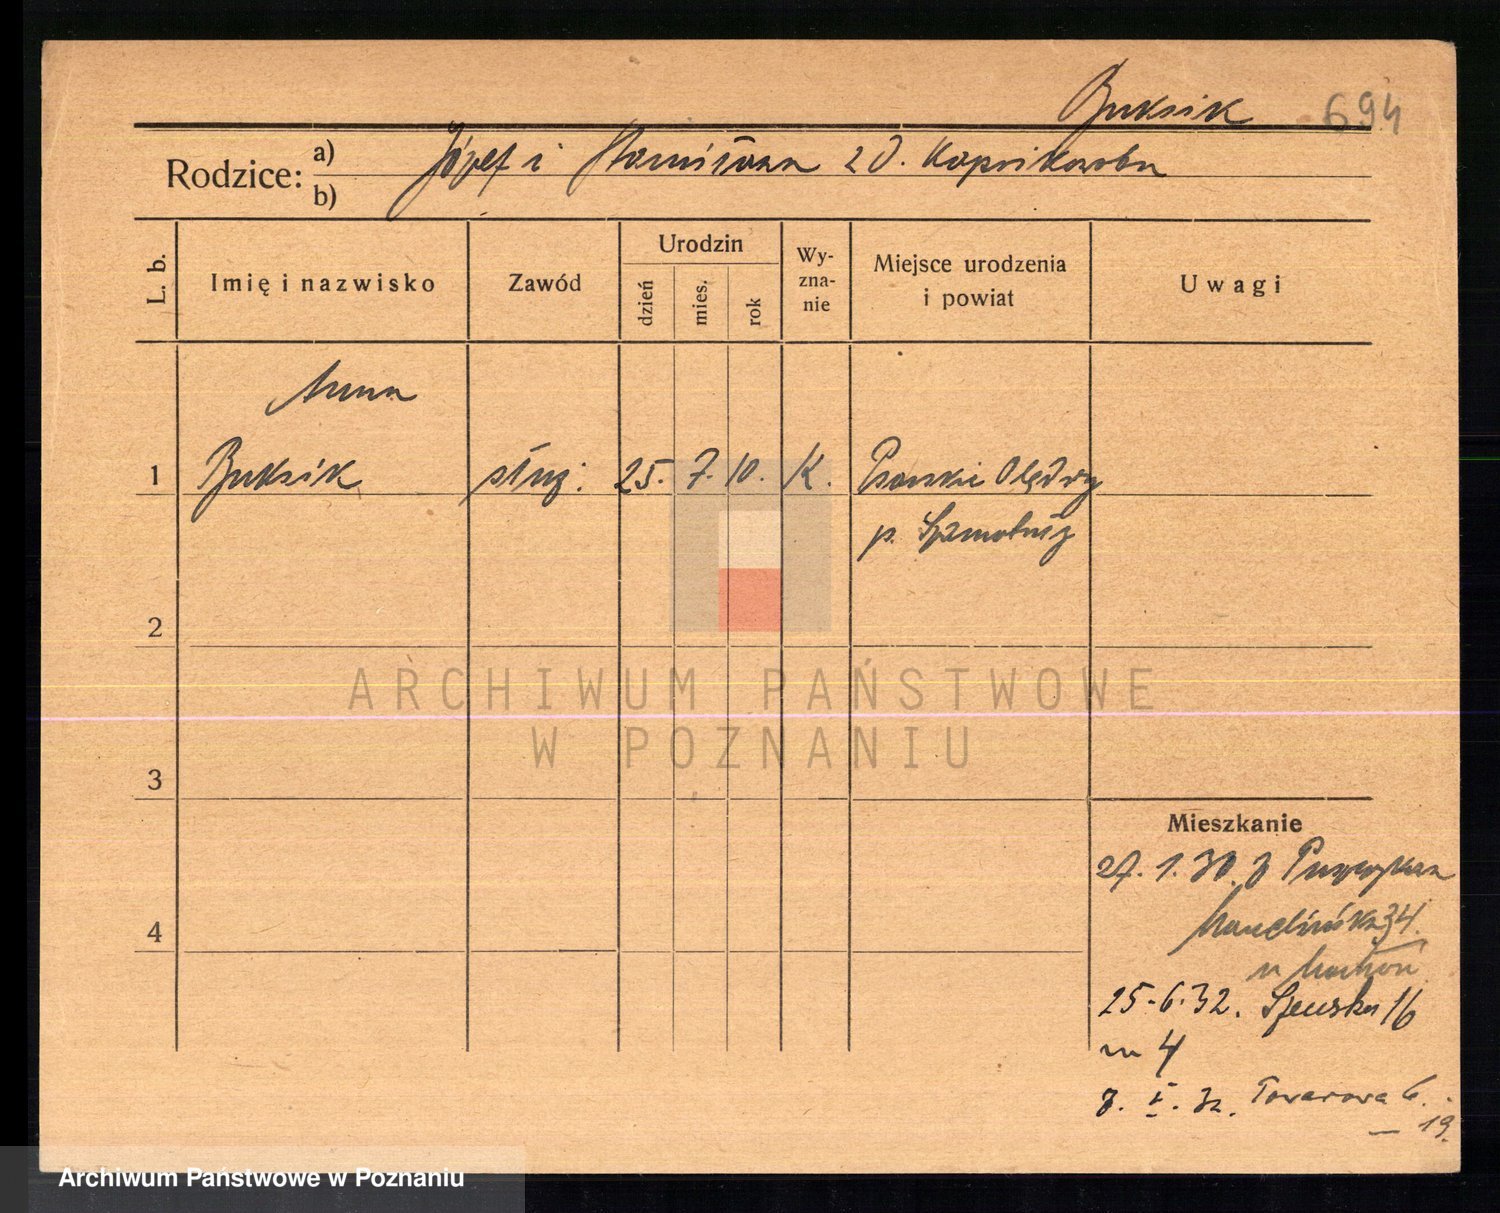 Buksik 694
Rodzice: a) b) Józef i Stanisława z d.
L. b. Imię i nazwisko Zawód Urodzin dzień mies. rok Wy-zna-nie Miejsce urodzenia i powiat Uwagi
Anna
1 Buksik służ. 25. 7. 10. K. Psarskie Olędry
p. Szamotuły
2
ARCHIWUM PAŃSTWOWE
W POZNANIU
3
Mieszkanie
27. 1. 30. z
4 34.
u
25.6.32. 16
m 4
32. Towarowa
19.
Archiwum Państwowe w Poznaniu